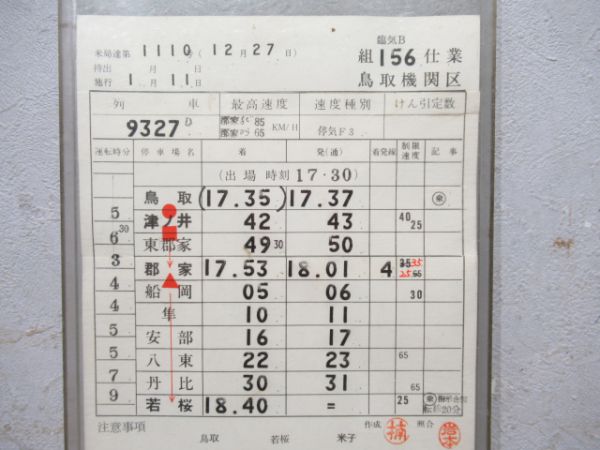 臨気B
米局達第 1110号(12月27日)
組 156 仕業
持出 月 日
施行 1月11日
鳥取機関区
列車 最高速度 速度種別 けん引定数
9327D 85 65 KM/H 停気F3
運転時分 停車場名 着 発(通) 着発線 制限速度 記事
(出場時刻 17・30)
鳥取 (17.35) 17.37
5 津ノ井 42 43 40 25
6 30 東郡家 49 30 50
3 郡家 17.53 18.01 4 35 35 25
4 船岡 05 06 30
4 隼 10 11
5 安部 16 17
5 八東 22 23 65
7 丹比 30 31 65
9 若桜 18.40 = 25 転 20分
注意事項
作成 照合
鳥取 若桜 米子